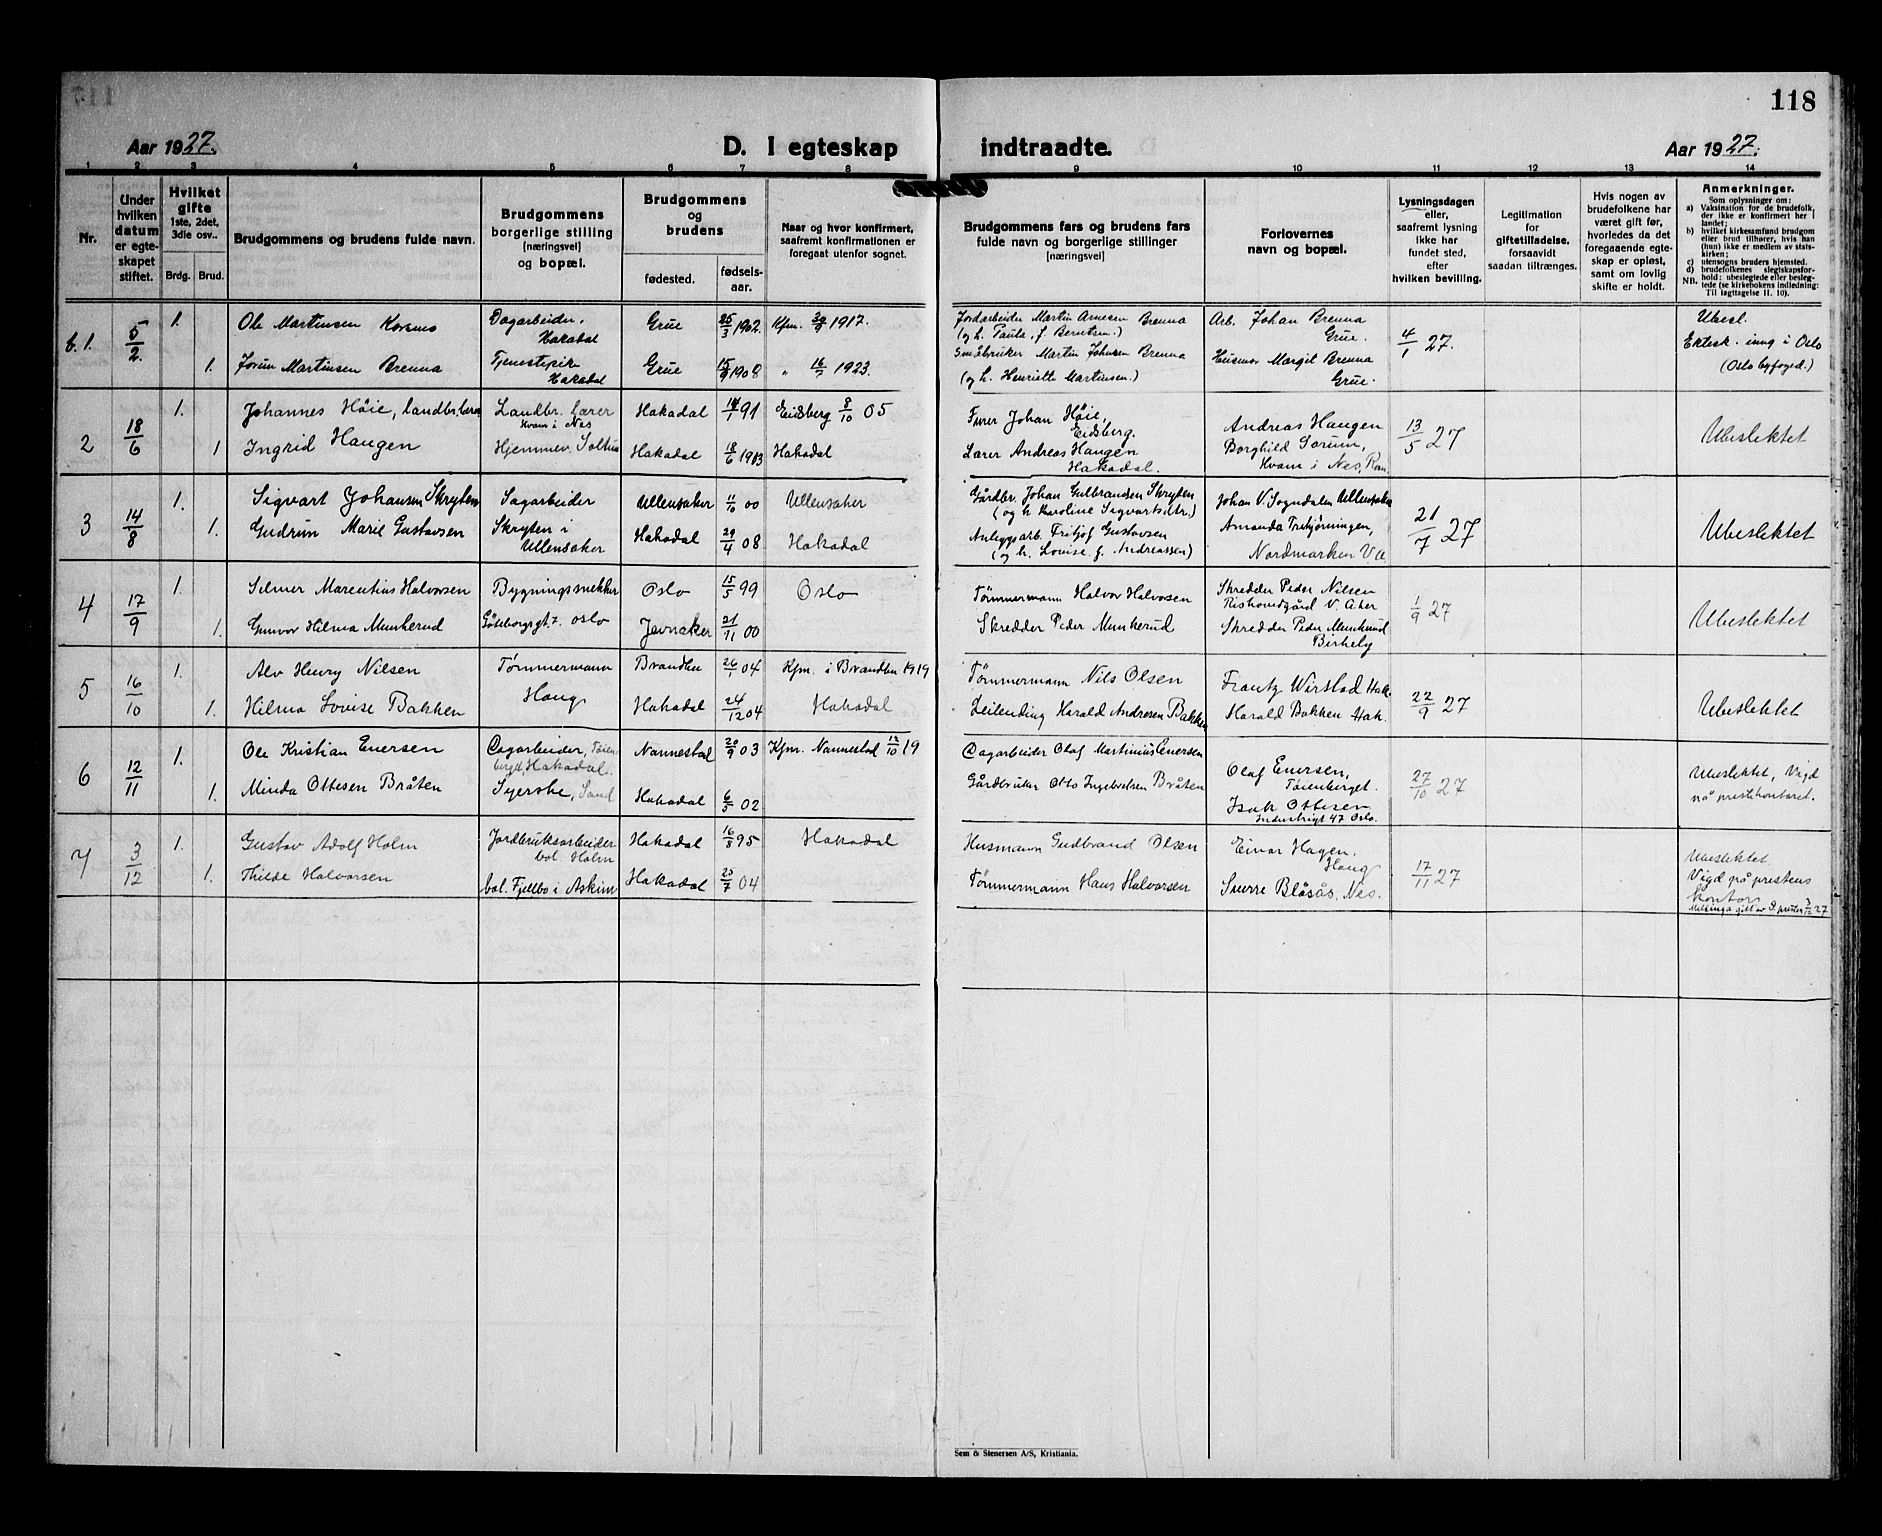 118
Aar 1927.
D. I egteskap
indtraadte.
Aar 1927.
1 2 3 4 5 6 7 8
9 10 11 12 13 14
Nr.
Under hvilken datum er egte-skapet stiftet.
Hvilket gifte
1ste, 2det, 3die osv..
Brdg. Brud.
Brudgommens og brudens fulde navn.
Brudgommens borgerlige stilling
[næringsvei]
og bopæl.
Brudgommens og brudens
fødested.
fødsels-aar.
Naar og hvor konfirmert,
saafremt konfirmationen er
foregaat utenfor sognet.
Brudgommens fars og brudens fars
fulde navn og borgerlige stillinger
[næringsvei]
Forlovernes
navn og bopæl.
Lysningsdagen
eller,
saafremt lysning
ikke har
fundet sted,
efter
hvilken bevilling.
Legitimation
for
giftetilladelse,
forsaavidt
saadan tiltrænges.
Hvis nogen av
brudefolkene har
været gift før,
hvorledes da det
foregaaende egte-
skap er opløst,
samt om lovlig
skifte er holdt.
Anmerkninger.
Som oplysninger om:
a) Vaksination for de brudefolk,
der ikke er konfirmert her i
landet;
b) hvilket kirkesamfund brudgom
eller brud tilhører, hvis han
(hun) ikke er medlem av stats-
kirken;
c) utensogns bruders hjemsted.
d) brudefolkenes slegtskapsfor-
hold: ubeslegtede eller besleg-
NB. tede (se kirkebokens indledning:
Til iagttagelse II. 10).
b.1. 5/2 1. Ole Martinsen Korsmo Dagarbeider, Hakadal Grue 25/3 1902. Kfm. 1917.
1. Jorun Martinsen Brenna Tjenestepike Hakadal Grue 1908 " 1923.
Jordarbeider Martin Arnesen Brenna
(og h. Paula, f. Berntsen.)
Småbruker Martin Johnsen Brenna
(og h. Henriette Martinsen.)
Arb. Johan Brenna
Grue.
Husmor Margit Brenna
Grue.
4/1 27.
Ubesl.
Ektesk. inng i Oslo
(Oslo byfoged.)
2 18/6 1. Johannes Höie, landbr. lærer Landbr. lærer Kvam i Nes Hakadal 14/1 91 Eidsberg 8/10 05
1 Ingrid Haugen Hjemmev. Hakadal 18/6 1903 Hakadal
Furer Johan Höie,
Eidsberg.
Lærer Andreas Haugen
Hakadal.
Andreas Haugen
Borghild Sørum,
Kvam i Nes, Rom.
13/5 27
Ubeslektet
3 14/8 1. Sigvart Johansen Skryten Sagarbeider Ullensaker 11/10 00 Ullensaker
1. Gudrun Marie Gustavsen Skryten i Ullensaker Hakadal 29/4 08 Hakadal
Gårdbr. Johan Gulbrandsen Skryten
(og h. Karoline Sigvartsdtr.)
Anleggsarb. Fritjof Gustavsen
(og h. Lovise f. Andreassen)
Johan V. Sogndalen Ullensaker
Amanda
Nordmarken V.A.
21/7 27
Ubeslektet
4 17/9 1. Selmer Marentius Halvorsen Bygningssnekker Oslo 15/5 99 Oslo
1. Gunvor Hilma Munkerud Göteborggt. 7. Oslo Jevnaker 21/11 00
Tømmermann Halvor Halvorsen
Skredder Peder Munkerud
Skredder Peder Nilsen
V. Aker
Skredder Peder Munkerud
Birkely
1/9 27
Ubeslektet
5 16/10 1. Alv Henry Nilsen Tømmermann Brandbu 26/1 04 Kfm. i Brandbu 1919
1. Hilma Lovise Bakken Haug Hakadal 24/12 04 Hakadal
Tømmermann Nils Olsen
Leilending Harald Andresen Bakken
Frantz Wirstad Hak.
Harald Bakken Hak.
22/9 27
Ubeslektet
6 12/11 1. Ole Kristian Enersen Dagarbeider, Tøienberget, Hakadal. Nannestad 20/9 03 Kfm. Nannestad 12/10 19
1. Minda Ottesen Bråten Syerske, Sand Hakadal 6/5 02
Dagarbeider Olaf Martinius Enersen
Gårdbruker Otto Ingebretsen Bråten
Olaf Enersen,
Tøienberget.
Isak Ottesen
Industrigt 47 Oslo.
27/10 27
Ubeslektet, Vigd
på prestekontoret.
7 3/12 1. Gustav Adolf Holm Jordbruksarbeider bol. Holm Hakadal 16/8 95 Hakadal
1. Thilde Halvorsen bol. Fjellbo i Askim Hakadal 25/7 04
Husmann Gudbrand Olsen
Tømmermann Hans Halvorsen
Einar Hagen,
Haug
Sverre Blåsås, Nes.
17/11 27
Ubeslektet
Vigd på prestens
kontor
Sem & Stenersen A/S, Kristiania.